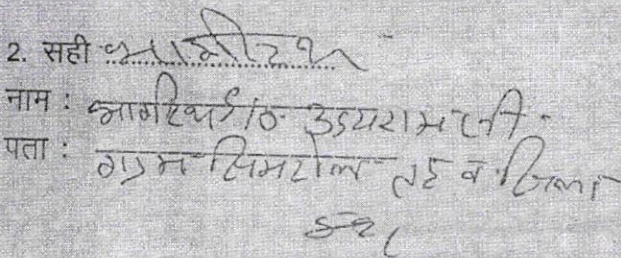 2. सही भागीरथ
नाम : भागीरथ S/o उदयरामजी
पता : ग्राम सिमरोल तह व जिला
इन्दौर